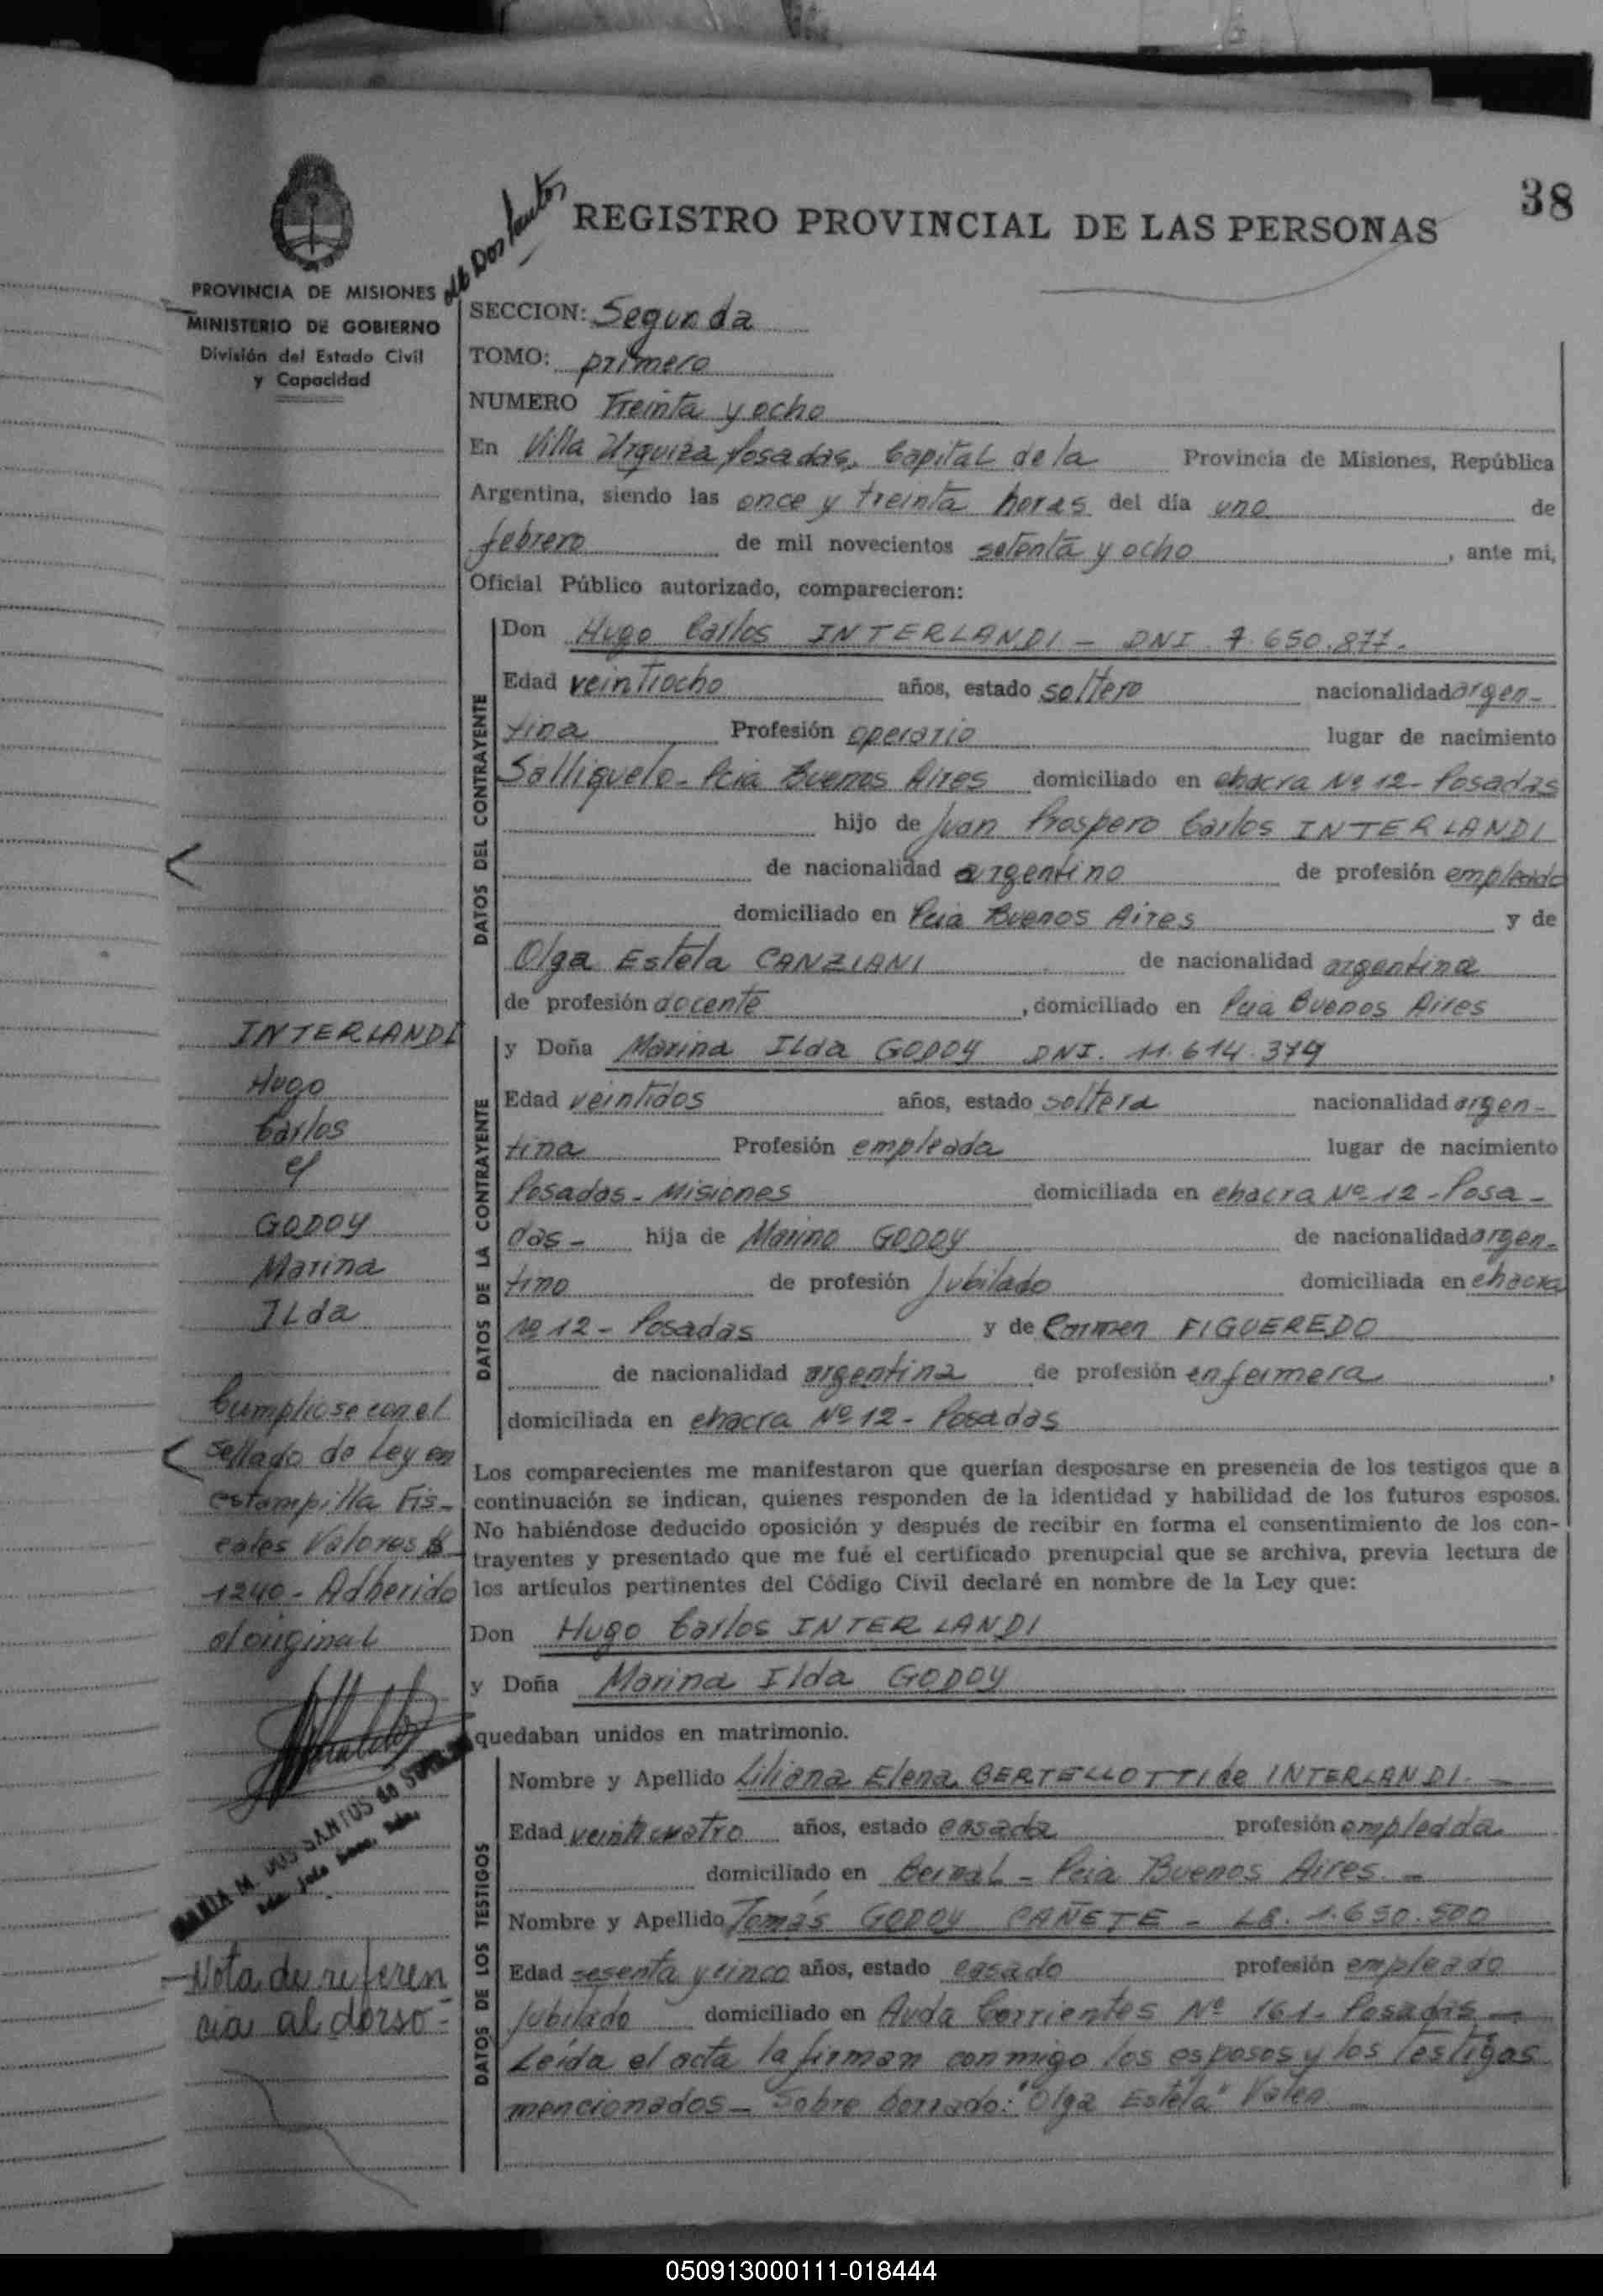 38
REGISTRO PROVINCIAL DE LAS PERSONAS
PROVINCIA DE MISIONES
MINISTERIO DE GOBIERNO
División del Estado Civil
y Capacidad
SECCION: Segunda
TOMO: primero
NUMERO Treinta y ocho
En Villa Urquiza Posadas, Capital de la Provincia de Misiones, República
Argentina, siendo las once y treinta horas del día uno de
febrero de mil novecientos setenta y ocho, ante mi,
Oficial Público autorizado, comparecieron:
DATOS DEL CONTRAYENTE
Don Hugo Carlos INTERLANDI - DNI 7.650.877.
Edad veintiocho años, estado soltero nacionalidad argen-
tina Profesión operario lugar de nacimiento
Salliquelo - Pcia Buenos Aires domiciliado en chacra Nº 12 - Posadas
hijo de Juan Prospero Carlos INTERLANDI
de nacionalidad argentino de profesión empleado
domiciliado en Pcia Buenos Aires y de
Olga Estela CANZIANI de nacionalidad argentina
de profesión docente, domiciliado en Pcia Buenos Aires
DATOS DE LA CONTRAYENTE
y Doña Marina Ilda GODOY DNI. 11.614.379
Edad veintidos años, estado soltera nacionalidad argen-
tina Profesión empleada lugar de nacimiento
Posadas - Misiones domiciliada en chacra Nº 12 - Posa-
das - hija de Marino GODOY de nacionalidad argen-
tino de profesión Jubilado domiciliada en chacra
Nº 12 - Posadas y de Carmen FIGUEREDO
de nacionalidad argentina de profesión enfermera,
domiciliada en chacra Nº 12 - Posadas
Los comparecientes me manifestaron que querían desposarse en presencia de los testigos que a
continuación se indican, quienes responden de la identidad y habilidad de los futuros esposos.
No habiéndose deducido oposición y después de recibir en forma el consentimiento de los con-
trayentes y presentado que me fué el certificado prenupcial que se archiva, previa lectura de
los artículos pertinentes del Código Civil declaré en nombre de la Ley que:
Don Hugo Carlos INTERLANDI
y Doña Marina Ilda GODOY
quedaban unidos en matrimonio.
DATOS DE LOS TESTIGOS
Nombre y Apellido Liliana Elena BERTELLOTTI de INTERLANDI. -
Edad veinticuatro años, estado casada profesión empleada
domiciliado en Bernal - Pcia Buenos Aires. -
Nombre y Apellido Tomás GODOY CAÑETE - LE. 1.650.500
Edad sesenta y cinco años, estado casado profesión empleado
Jubilado domiciliado en Avda Corrientes Nº 161 - Posadas -
Leída el acta la firman conmigo los esposos y los Testigos
mencionados - Sobre borrado: "Olga Estela" Valen -
INTERLANDI
Hugo
Carlos
c/
GODOY
Marina
ILda
Cumpliose con el
sellado de Ley en
estampilla Fis-
cales Valores $
1240 - Adherido
al original
MARIA M. DOS SANTOS de
Nota de referen
cia al dorso -
050913000111-018444